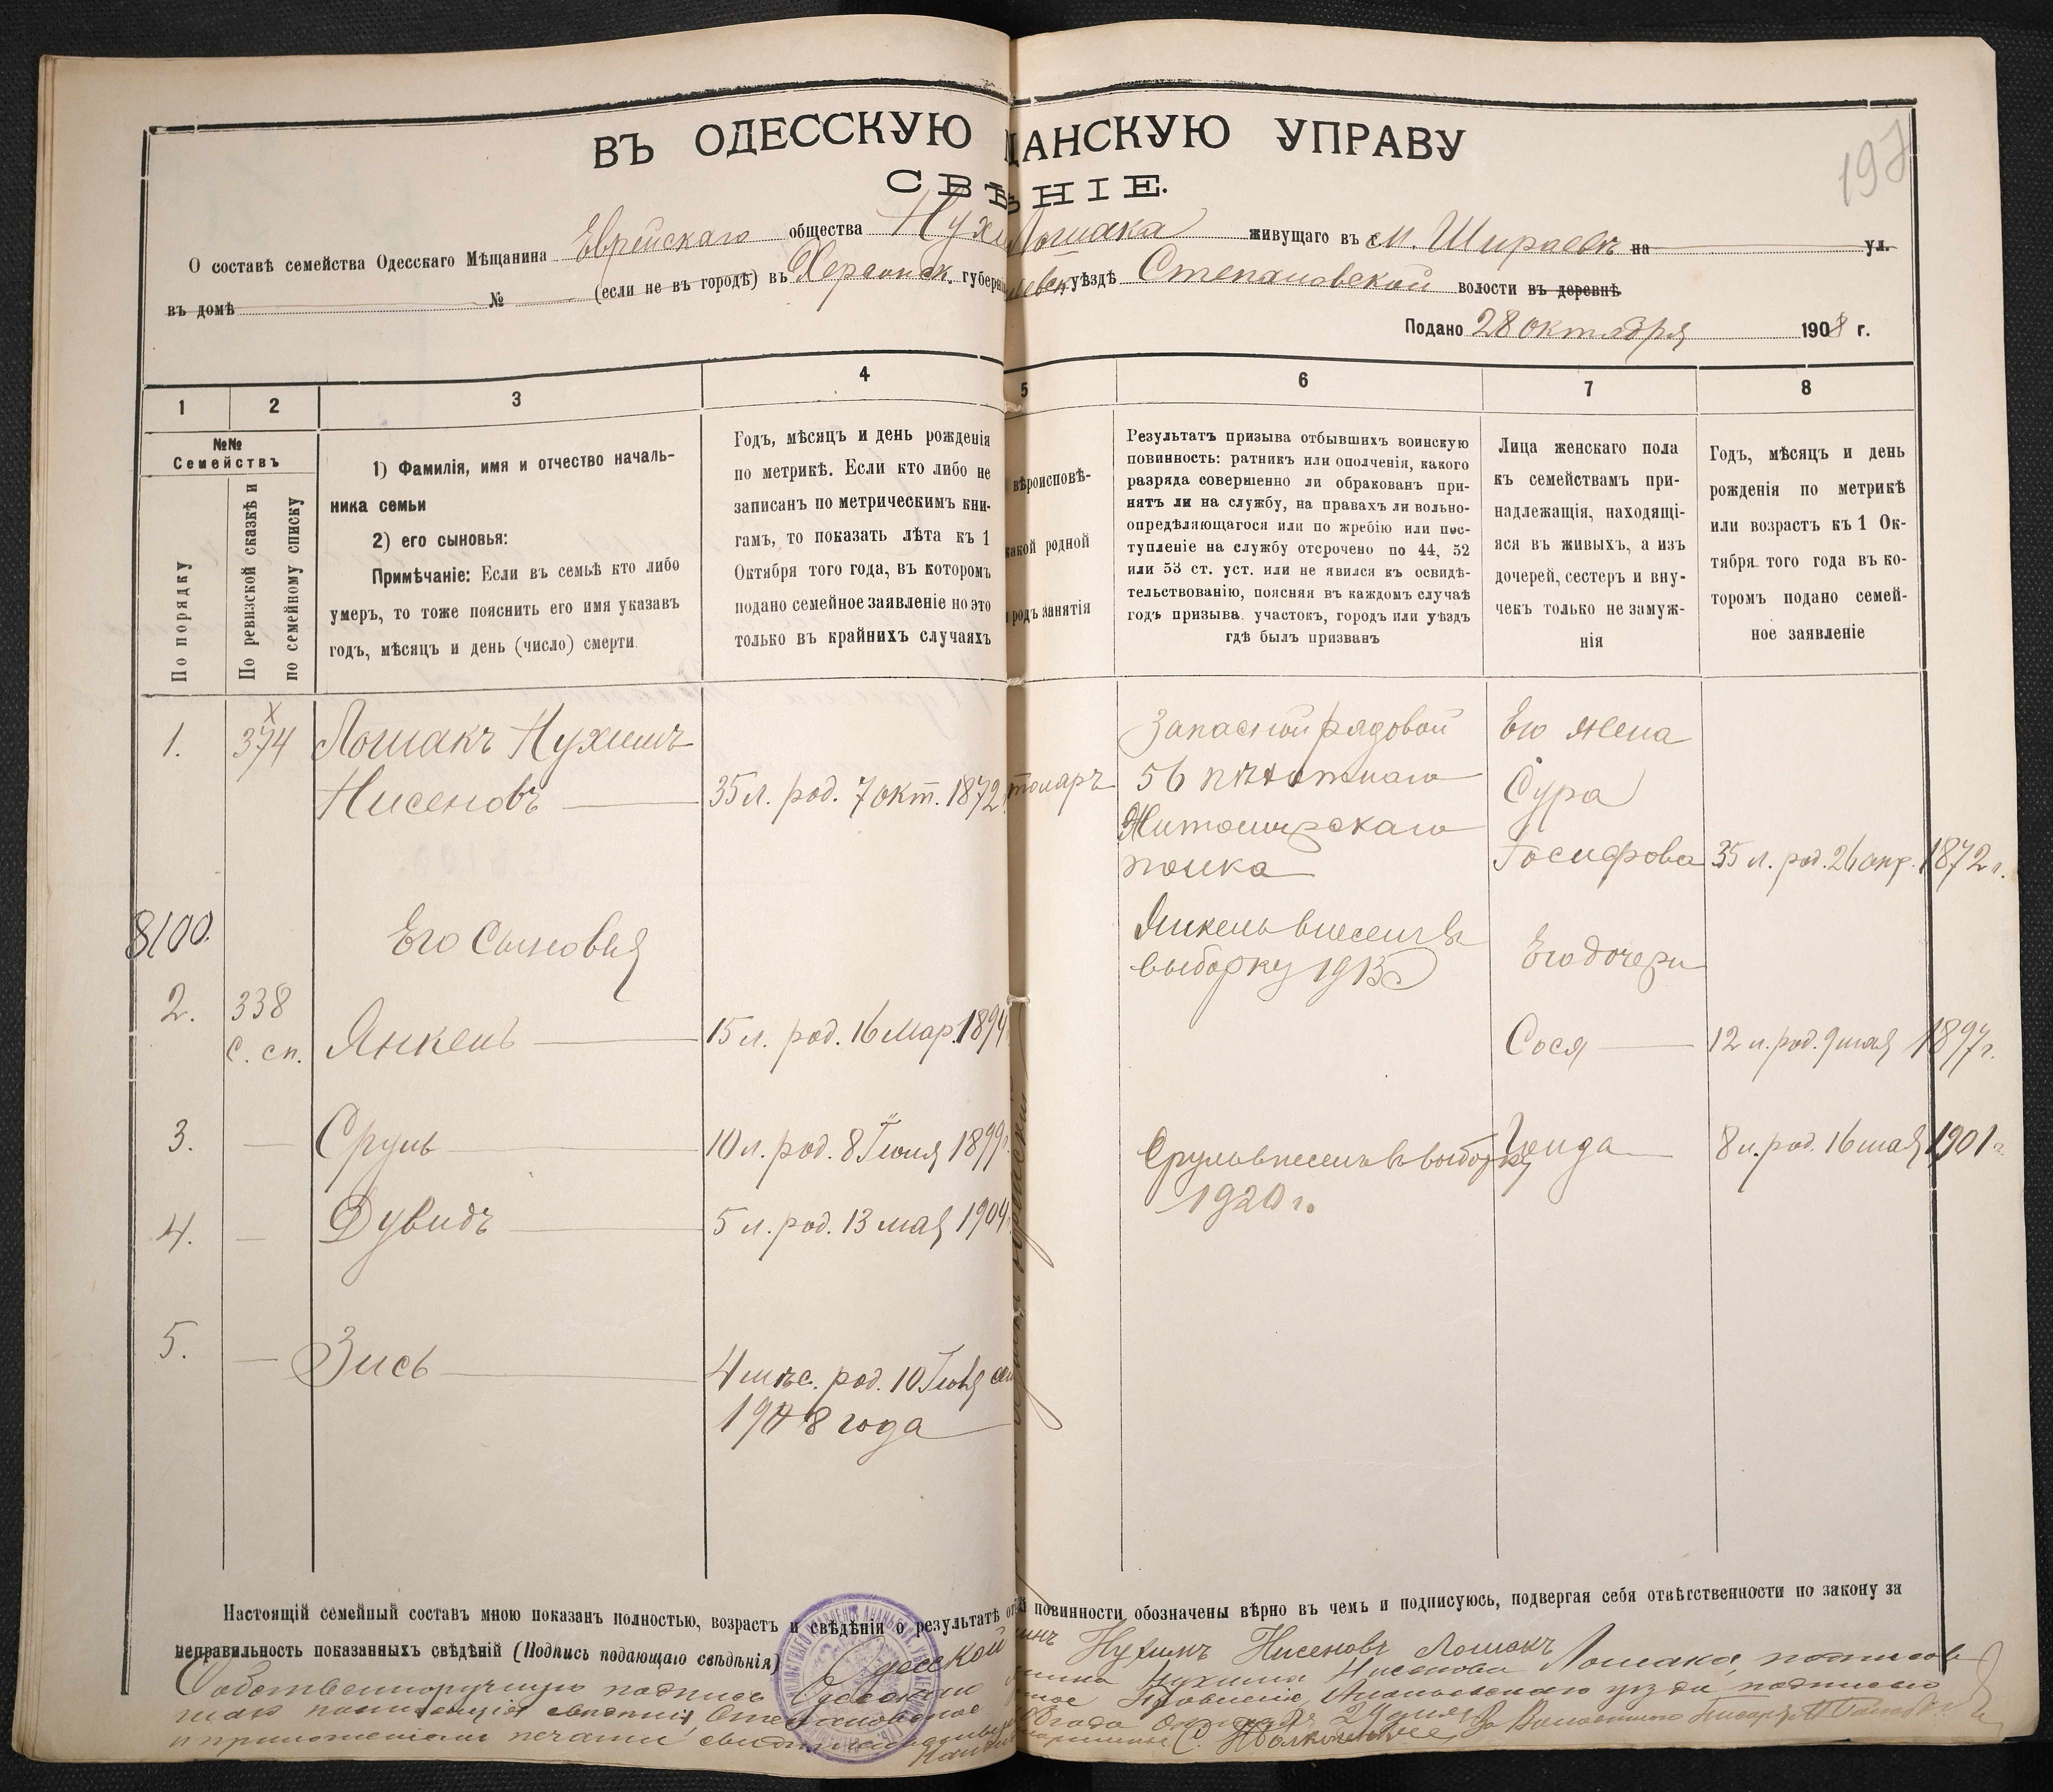 ВЪ ОДЕССКУЮ ЩАНСКУЮ УПРАВУ
СВѢ НІЕ.
197
О составѣ семейства Одесскаго Мѣщанина Еврейскаго общества Нухи Лошака живущаго въ м. Шираевѣ на ул.
въ домѣ № (если не въ городѣ) въ Херсонск. губерн уѣздѣ Степановской волости въ деревнѣ
Подано 28 октября 1908 г.
1 2 3 4 5 6 7 8
№№
Семействъ
По порядку
По ревизской сказкѣ и
по семейному списку
1) Фамилія, имя и отчество началь-
ника семьи
2) его сыновья:
Примѣчаніе: Если въ семьѣ кто либо
умеръ, то тоже пояснить его имя указавъ
годъ, мѣсяцъ и день (число) смерти
Годъ, мѣсяцъ и день рожденія
по метрикѣ. Если кто либо не
записанъ по метрическимъ кни-
гамъ, то показать лѣта къ 1
Октября того года, въ которомъ
подано семейное заявленіе но это
только въ крайнихъ случаяхъ
вѣроисповѣ-
какой родной
родъ занятія
Результатъ призыва отбывшихъ воинскую
повинность: ратникъ или ополченія, какого
разряда совершенно ли обракованъ при-
нятъ ли на службу, на правахъ ли вольно-
опредѣляющагося или по жребію или пос-
тупленіе на службу отсрочено по 44, 52
или 53 ст. уст. или не явился къ освидѣ-
тельствованію, поясняя въ каждомъ случаѣ
годъ призыва. участокъ, городъ или уѣздъ
гдѣ былъ призванъ
Лица женскаго пола
къ семействамъ при-
надлежащія, находящі-
яся въ живыхъ, а изъ
дочерей, сестеръ и вну-
чекъ только не замуж-
нія
Годъ, мѣсяцъ и день
рожденія по метрикѣ
или возрастъ къ 1 Ок-
тября того года въ ко-
торомъ подано семей-
ное заявленіе
1. 374 Лошакъ Нухимъ
Нисеновъ 35 л. род. 7 окт. 1872 столяръ
Запасной рядовой
56 пѣхотнаго
Житомирскаго
полка
Его жена
Сура
Іосифова 35 л. род. 26 апр. 1872 г.
8100.
Его Сыновья
Янкель внесенъ въ
выборку 1915
Его дочери
2. 338
с. сп. Янкель 15 л. род. 16 Мар. 1894
Сося 12 л. род. 9 мая 1897 г.
3. Сруль 10 л. род. 8 Іюля 1899 г.
Сруль внесенъ въ выборку
1920 г.
8 л. род. 16 мая 1901 г.
4. Дувидъ 5 л. род. 13 мая 1904
5. Зись 4 мѣс. род. 10 Іюня
1908 года
Настоящій семейный составъ мною показанъ полностью, возрастъ и свѣдѣнія о результатѣ от й повинности обозначены вѣрно въ чемъ и подписуюсь, подвергая себя отвѣтственности по закону за
неправильность показанныхъ свѣдѣній (Подпись подающаго свѣдѣнія) Одесской инъ Нухимъ Нисеновъ Лошакъ
Собственноручную подпись Одесскаго Нухима Нисенова Лошака,
Степановское Правленіе, Ананьевскаго уѣзда подписью
и приложеніемъ печати года октября 29 дня
За Волостного Писаря